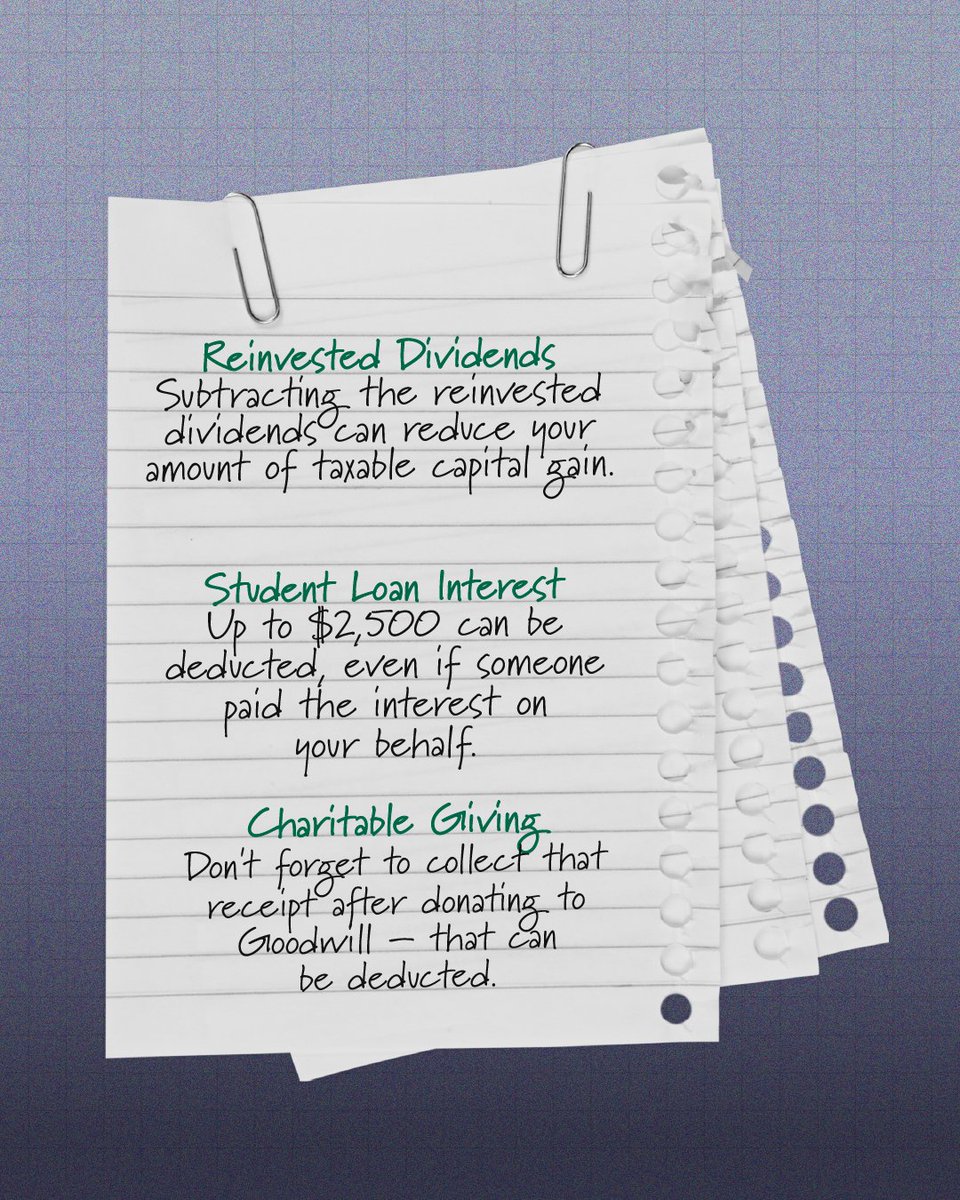 Reinvested Dividends
Subtracting the reinvested
dividends can reduce your
amount of taxable capital gain.
Student Loan Interest
Up to $2,500 can be
deducted, even if someone
paid the interest on
your behalf.
Charitable Giving
Don't forget to collect that
receipt after donating to
Goodwill – that can
be deducted.